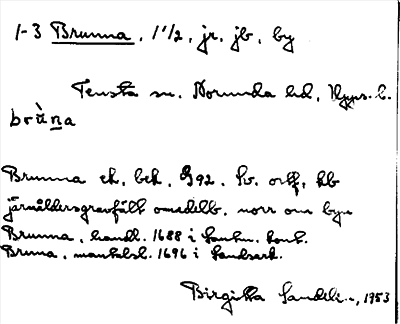 1-3 Brunna, 1 1/2, jr, jb, by
Tensta sn. Norunda hd, Upps. l.
brùna
Brunna ek. bek. G92. Sv. ortf. hb
järnåldersgravfält omedelb. norr om byn
Brunna, handl. 1688 i Lantm. kont.
Bruna, mantalsl. 1696 i Landsark.
Birgitta 1953